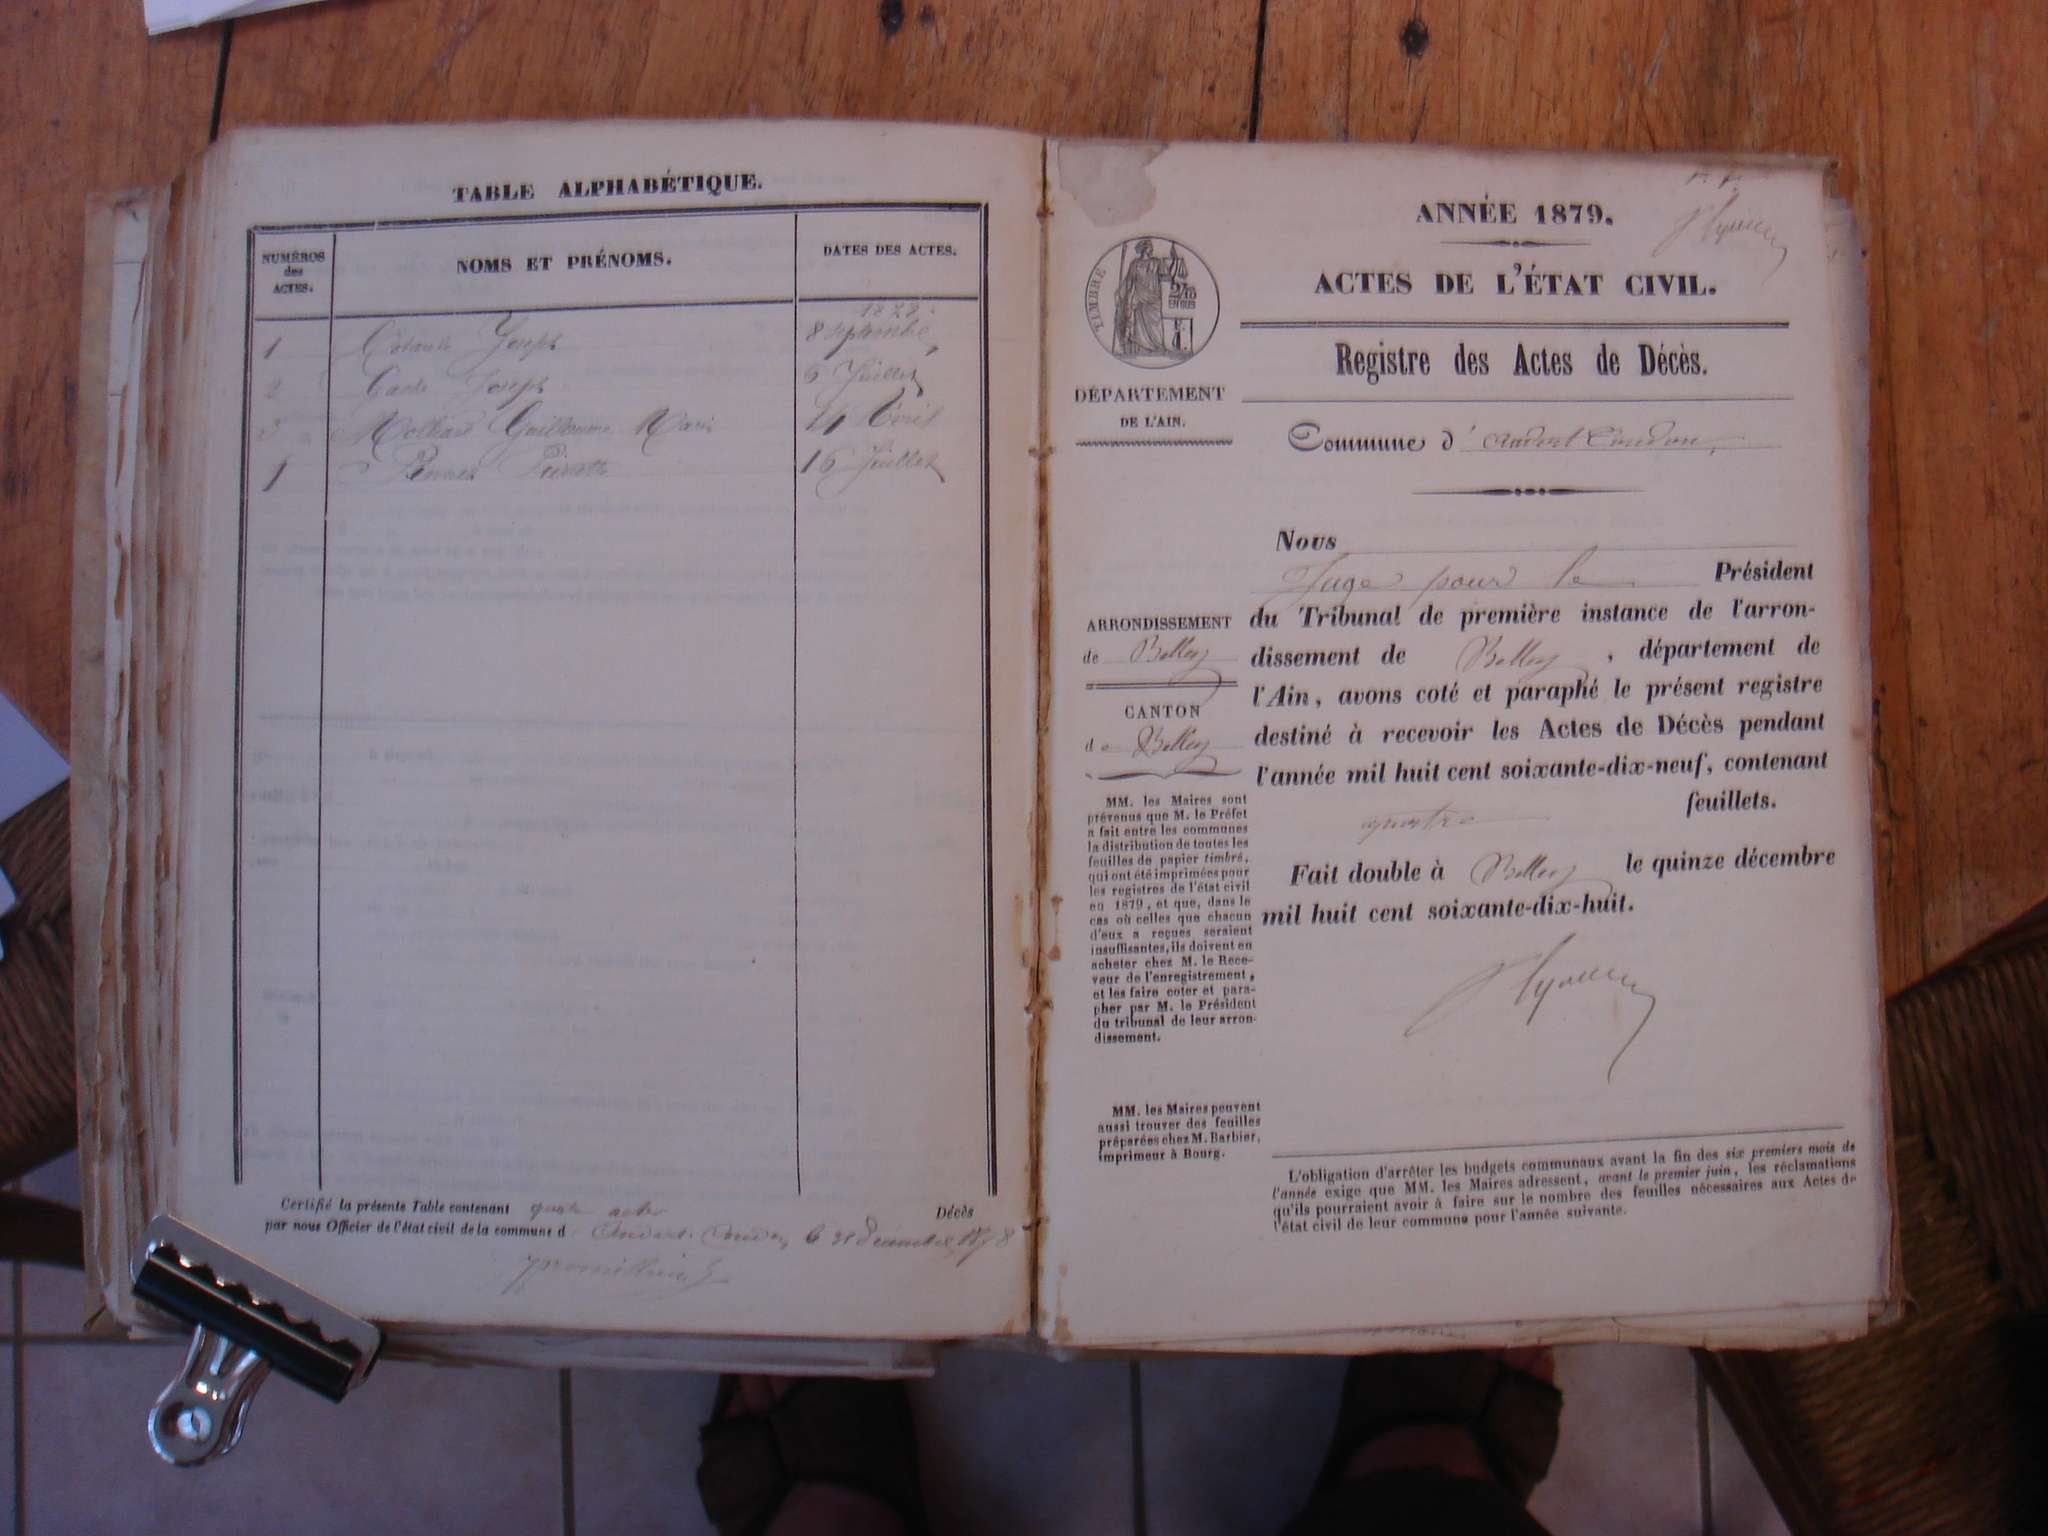 TABLE ALPHABÉTIQUE.
NUMÉROS
des
ACTES.
NOMS ET PRÉNOMS.
DATES DES ACTES.
1 Joseph 8 septembre
2 Joseph 6 Juillet
3 Guillaume Marie
1 16 Juillet
Certifié la présente Table contenant quatre actes Décès
par nous Officier de l'état civil de la commune d' Andert-Condon le 31 décembre 1878
ANNÉE 1879.
ACTES DE L'ÉTAT CIVIL.
TIMBRE
2/10
EN SUS
Registre des Actes de Décès.
DÉPARTEMENT
DE L'AIN.
Commune d' Andert Condon,
ARRONDISSEMENT
de Belley
CANTON
de Belley
MM. les Maires sont
prévenus que M. le Préfet
a fait entre les communes
la distribution de toutes les
feuilles de papier timbré,
qui ont été imprimées pour
les registres de l'état civil
en 1879, et que, dans le
cas où celles que chacun
d'eux a reçues seraient
insuffisantes, ils doivent en
acheter chez M. le Rece-
veur de l'enregistrement,
et les faire coter et para-
pher par M. le Président
du tribunal de leur arron-
dissement.
MM. les Maires peuvent
aussi trouver des feuilles
préparées chez M. Barbier,
imprimeur à Bourg.
Nous
Juge pour le Président
du Tribunal de première instance de l'arron-
dissement de Belley, département de
l'Ain, avons coté et paraphé le présent registre
destiné à recevoir les Actes de Décès pendant
l'année mil huit cent soixante-dix-neuf, contenant
quatre feuillets.
Fait double à Belley le quinze décembre
mil huit cent soixante-dix-huit.
L'obligation d'arrêter les budgets communaux avant la fin des six premiers mois de
l'année exige que MM. les Maires adressent, avant le premier juin, les réclamations
qu'ils pourraient avoir à faire sur le nombre des feuilles nécessaires aux Actes de
l'état civil de leur commune pour l'année suivante.